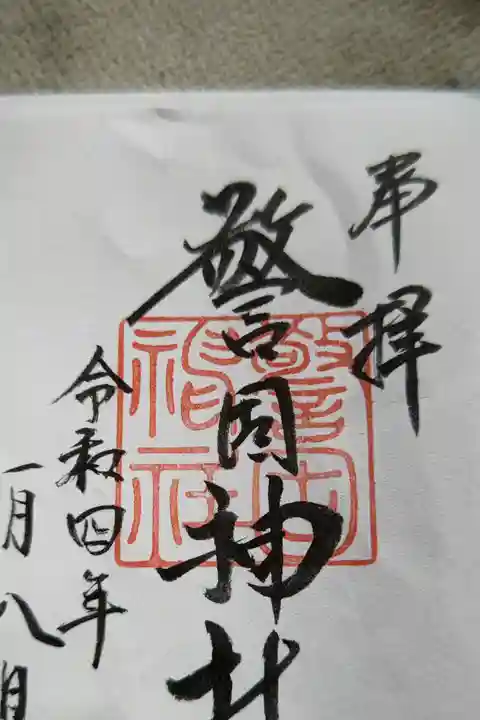 奉拝
警固神社
令和四年
一月八日
警固神社